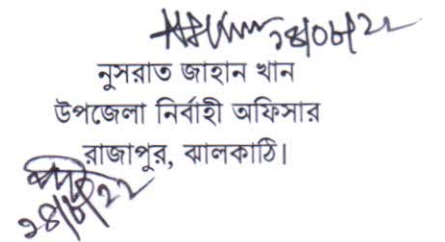 ২৪/০৮/২২
নুসরাত জাহান খান
উপজেলা নির্বাহী অফিসার
রাজাপুর, ঝালকাঠি।
২৪/৮/২২